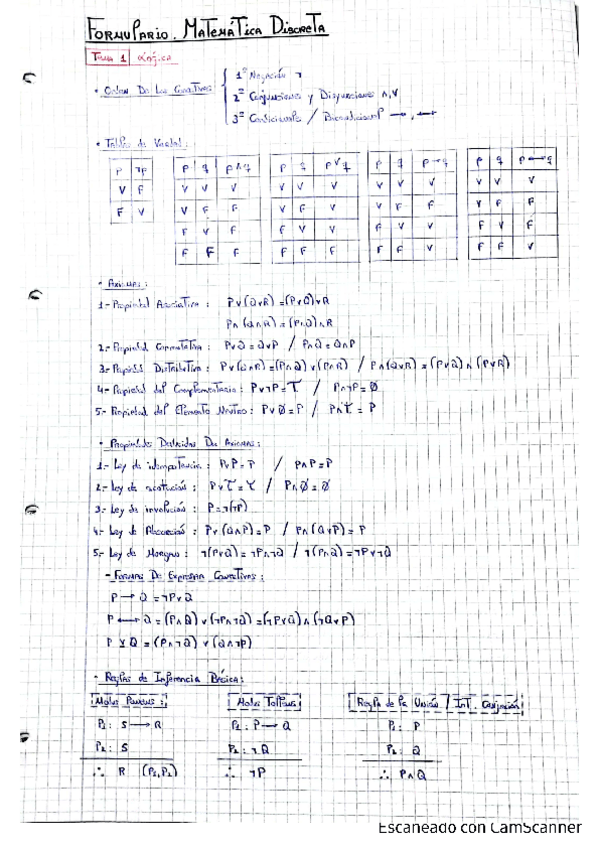 FORMULARIO. MATEMÁTICA DISCRETA
TEMA 1 LÓGICA
• ORDEN DE LOS CONECTIVOS
1º Negación ¬
2º Conjunciones y Disyunciones ∧, ∨
3º Condicionales / Bicondicional →, ↔
• Tablas de Verdad:
p ¬p
V F
F V
p q p∧q
V V V
V F F
F V F
F F F
p q p∨q
V V V
V F V
F V V
F F F
p q p→q
V V V
V F F
F V V
F F V
p q p↔q
V V V
V F F
F V F
F F V
• AXIOMAS:
1.- Propiedad Asociativa: P∨(Q∨R)=(P∨Q)∨R
P∧(Q∧R)=(P∧Q)∧R
2.- Propiedad Conmutativa: P∨Q=Q∨P / P∧Q=Q∧P
3.- Propiedad Distributiva:
4.- Propiedad del Complementario: P∨¬P=τ / P∧¬P=Ø
5.- Propiedad del Elemento Neutro: P∨Ø=P / P∧τ=P
• Propiedades Derivadas De Axiomas:
1.- Ley de idempotencia: P∨P=P / P∧P=P
2.- Ley de P∨τ=τ / P∧Ø=Ø
3.- Ley de involución: P=¬(¬P)
4.- Ley de Absorción: P∨(Q∧P)=P / P∧(Q∨P)=P
5.- Ley de Morgan: ¬(P∨Q)=¬P∧¬Q / ¬(P∧Q)=¬P∨¬Q
- FORMAS DE EXPRESAR CONECTIVOS:
P→Q=¬P∨Q
P↔Q=(P∧Q)∨(¬P∧¬Q)=(¬P∨Q)∧(¬Q∨P)
P⊻Q=(P∧¬Q)∨(Q∧¬P)
• Reglas de Inferencia Básica:
Modus Ponens:
P₁: S→R
P₂: S
∴ R (P₁,P₂)
Modus Tollens
P₁: P→Q
P₂: ¬Q
∴ ¬P
Regla de la Unión / Int. Conjunción
P₁: P
P₂: Q
∴ P∧Q
Escaneado con CamScanner